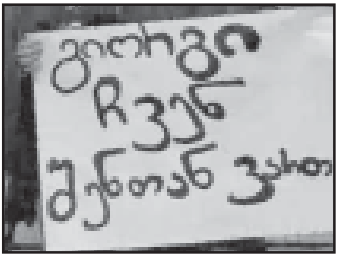 გიორგი
ჩვენ
შენთან ვართ